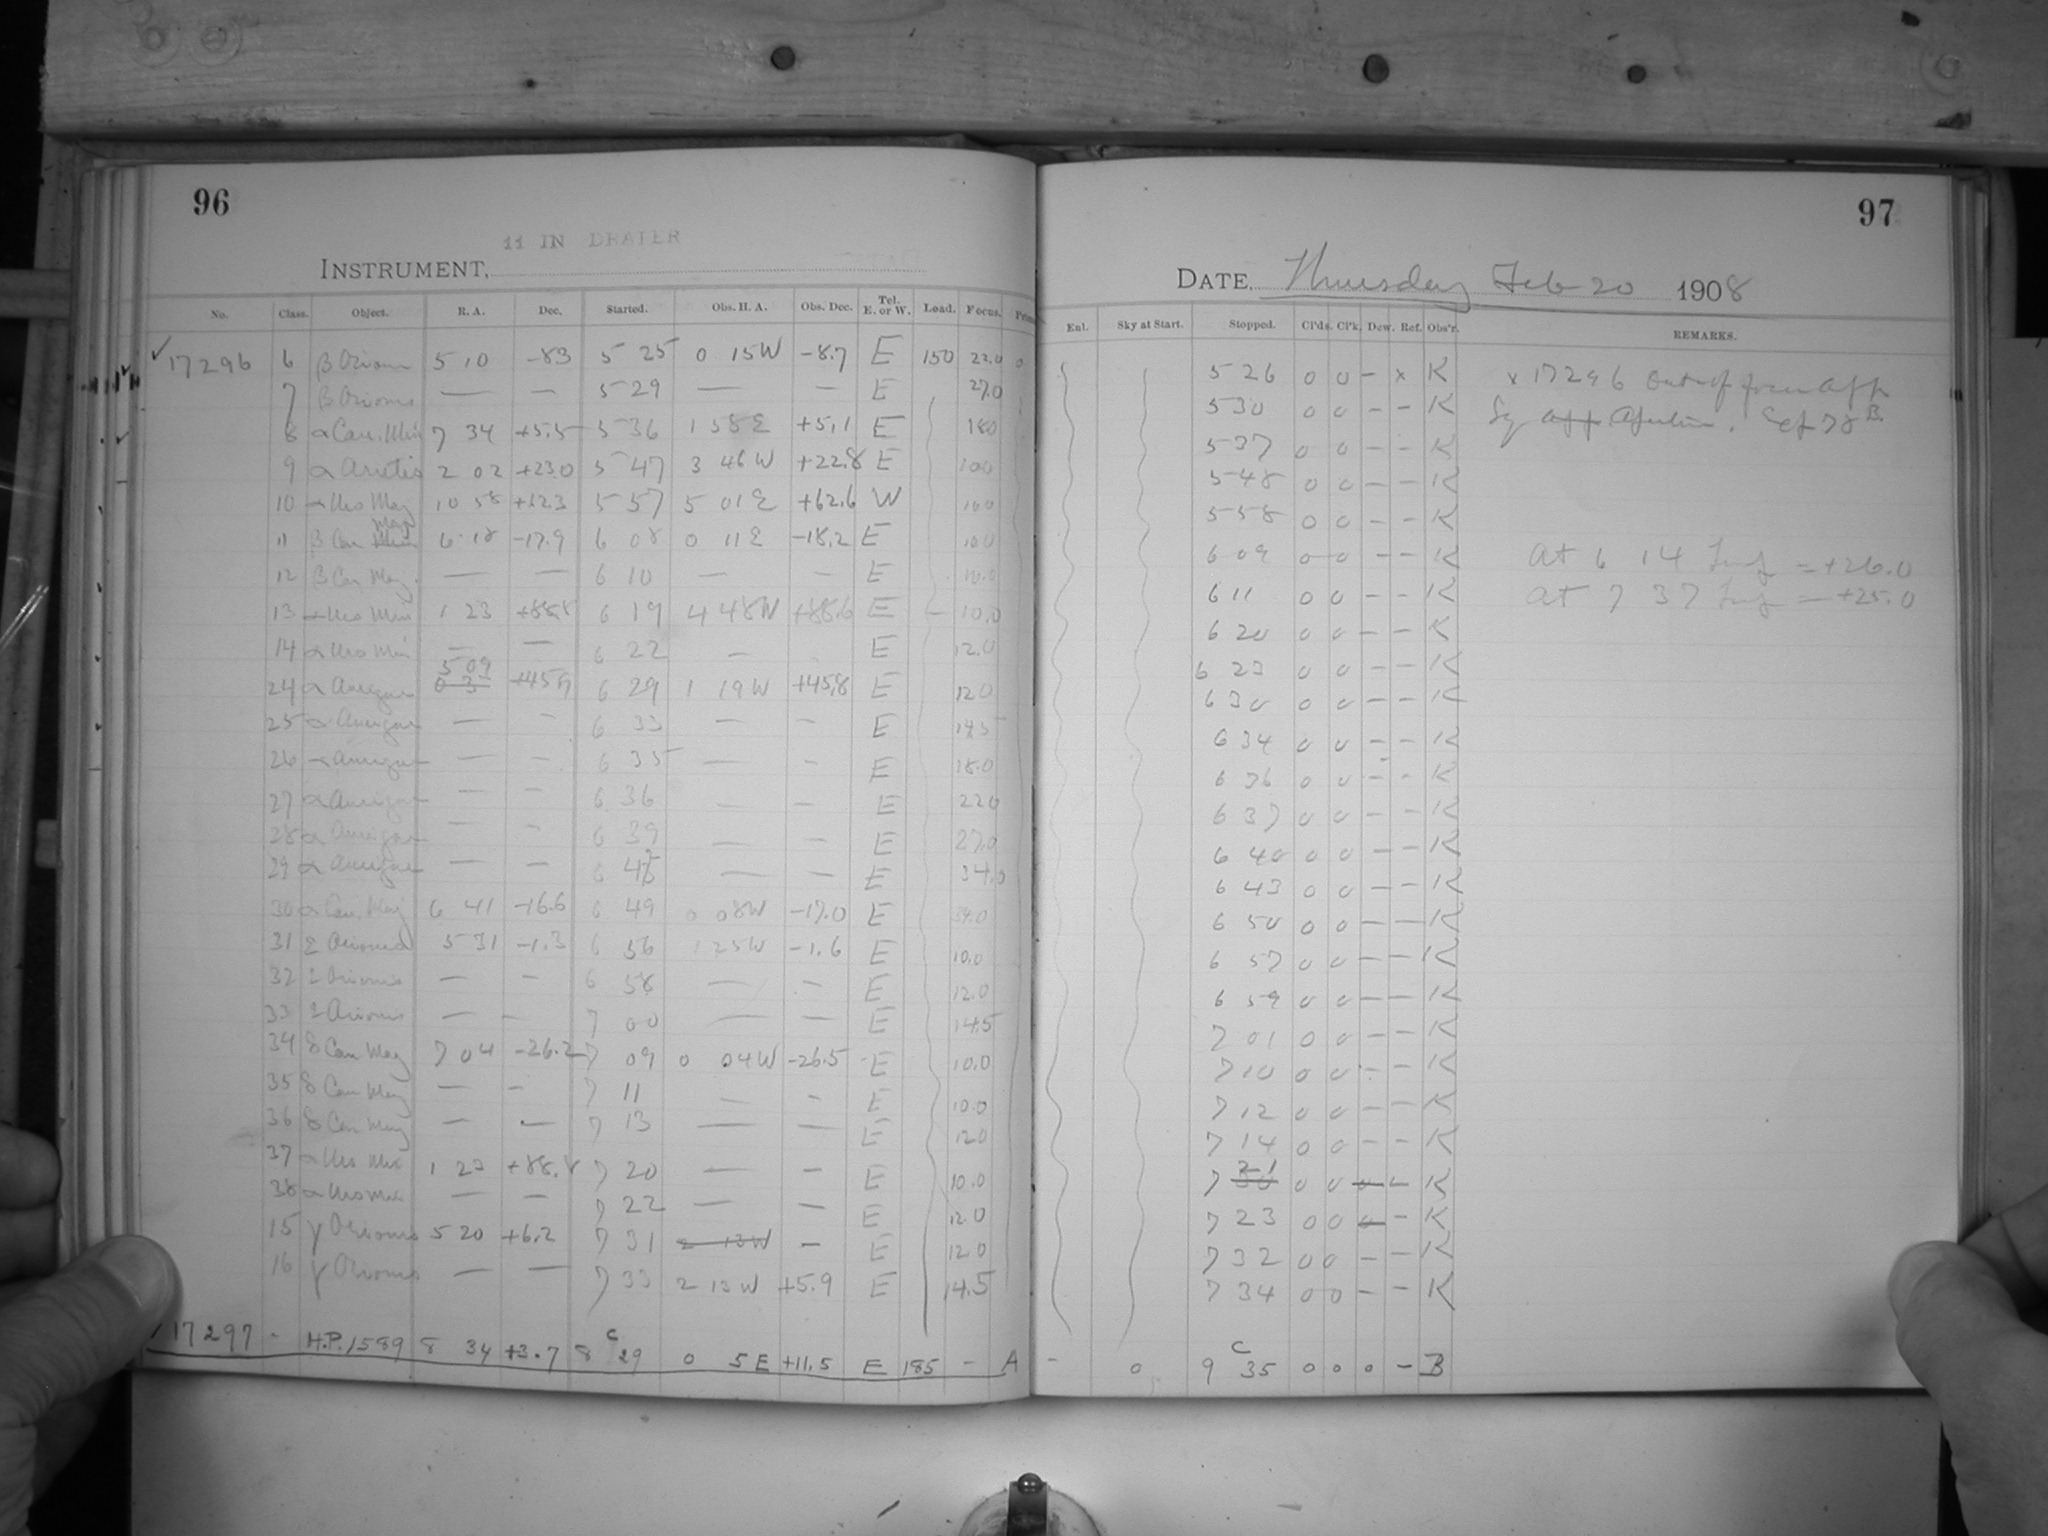 96
11 IN DRAPER
INSTRUMENT,
No. Class. Object. R. A. Dec. Started. Obs. H. A. Obs. Dec. Tel. E. or W. Load. Focus.
✓17296 6 β Orionis 5 10 -83 5 25 0 15W -8.7 E 150 22.0 0
7 β Orionis — — 5 29 — — E 27.0
8 α Can. Min 7 34 +5.5 5 36 1 58E +5,1 E 180
9 α Arietis 2 02 +23.0 5 47 3 46W +22.8 E 100
10 α Urs Maj 10 58 +62.3 5 57 5 01E +62.6 W 100
11 β Can Maj 6 18 -17.9 6 08 0 11E -18.2 E 100
12 β Can Maj. — — 6 10 — — E 10.0
13 α Urs Min 1 23 +88.8 6 19 4 48W +88.6 E — 10.0
14 α Urs Min — — 6 22 — E 12.0
24 α Aurigae 5 09 +45.9 6 29 1 19W +45.8 E 12.0
25 α Aurigae — — 6 33 — — E 14.5
26 α Aurigae — — 6 35 — — E 18.0
27 α Aurigae — — 6 36 — — E 22.0
28 α Aurigae — — 6 39 — — E 27.0
29 α Aurigae — — 6 42 — — E 34.0
30 α Can. Maj 6 41 -16.6 6 49 0 08W -17.0 E
31 ε Orionis 5 31 -1.3 6 56 1 25W -1.6 E 10.0
32 ε Orionis — — 6 58 — — E 12.0
33 ε Orionis — — 7 00 — — E 14.5
34 δ Can Maj 7 04 -26.2 7 09 0 04W -26.5 E 10.0
35 δ Can Maj — — 7 11 — — E 10.0
36 δ Can Maj — — 7 13 — — E 12.0
37 α Urs Min 1 23 +88.8 7 20 — — E 10.0
38 α Urs Min — — 7 22 — — E 12.0
15 γ Orionis 5 20 +6.2 7 31 2 13W — E 12.0
16 γ Orionis — — 7 33 2 13W +5.9 E 14.5
17297 - H.P. 1589 8 34 +3.7 8 C 29 0 5 E +11.5 E 185 - A
97
DATE, Thursday Feb 20 1908
Enl. Sky at Start. Stopped. Cl'ds. Cl'k. Dew. Ref. Obs'r. REMARKS.
5 26 0 0 - x K x 17296 out of from
5 30 0 0 - - K
5 37 0 0 - - K
5 48 0 0 - - K
5 58 0 0 - - K
6 09 0 0 - - K At 6 14 = +26.0
6 11 0 0 - - K At 7 37 = +25.0
6 20 0 0 - - K
6 23 0 0 - - K
6 30 0 0 - - K
6 34 0 0 - - K
6 36 0 0 - - K
6 37 0 0 - - K
6 40 0 0 - - K
6 43 0 0 - - K
6 50 0 0 - - K
6 57 0 0 - - K
6 59 0 0 - - K
7 01 0 0 - - K
7 10 0 0 - - K
7 12 0 0 - - K
7 14 0 0 - - K
7 21 0 0 - - K
7 23 0 0 - - K
7 32 0 0 - - K
7 34 0 0 - - K
- 0 9 C 35 0 0 0 - B